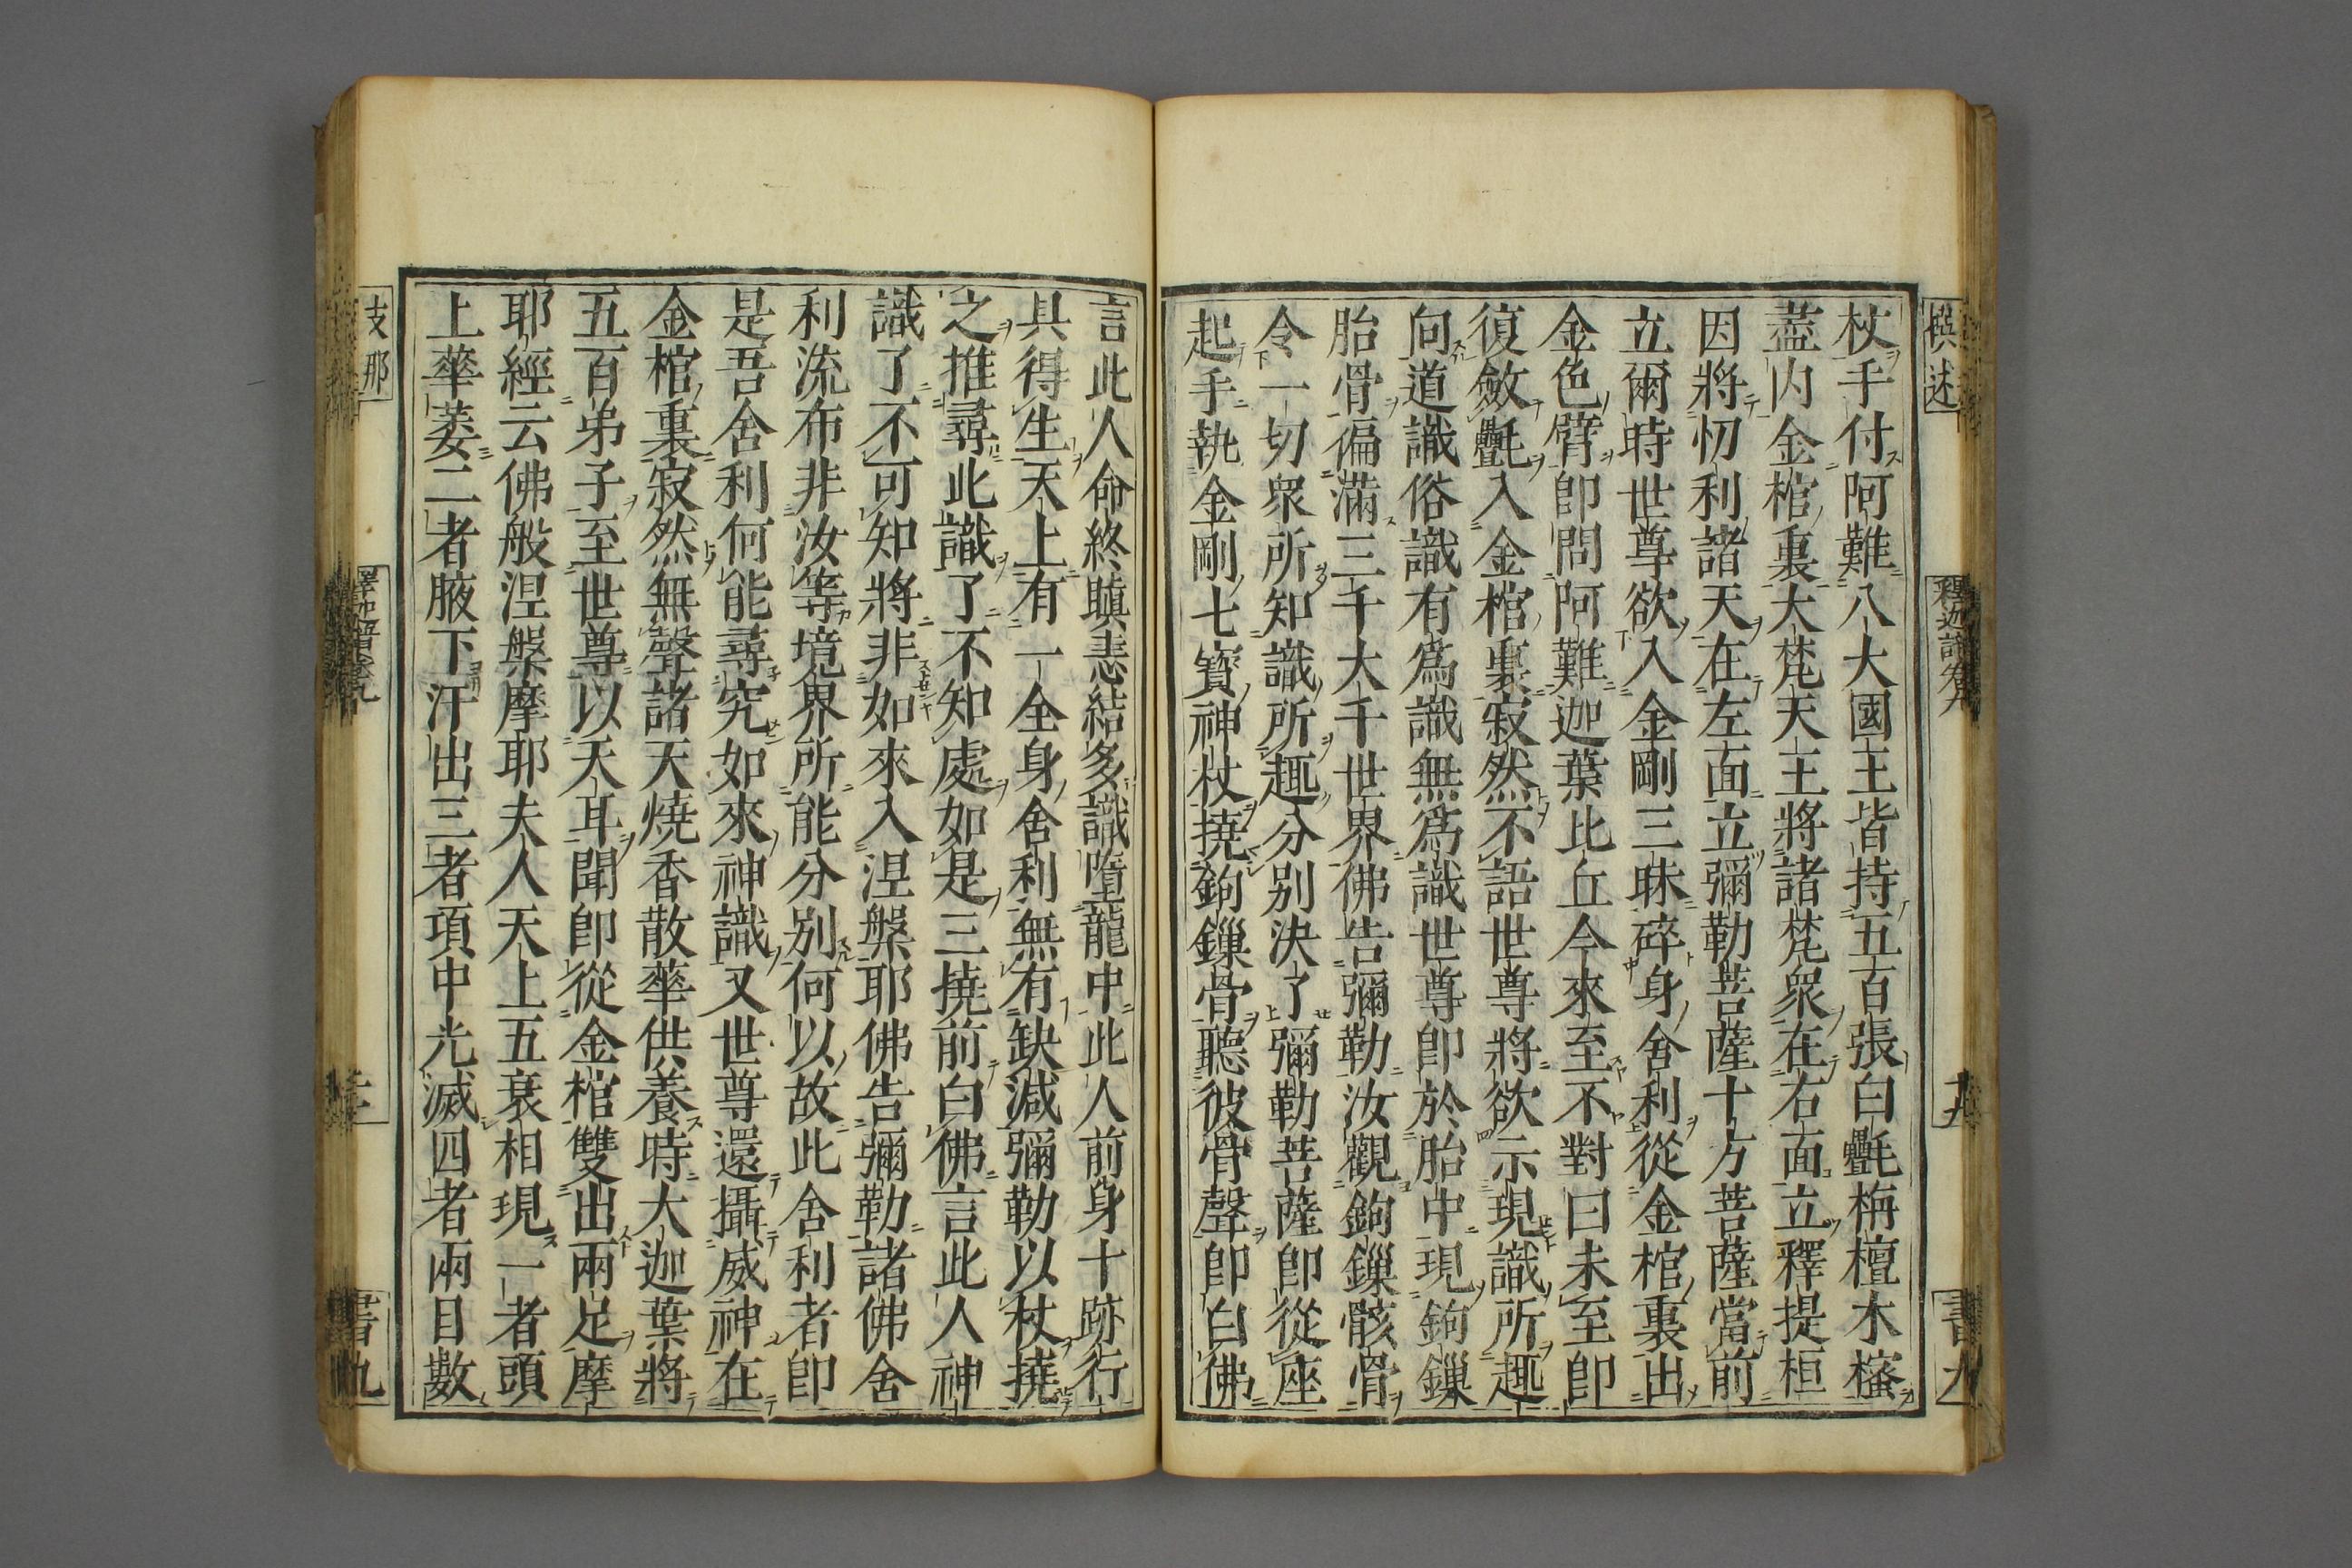 撰述
釋迦譜卷九
十九
書九
杖手付阿難八大國王皆持五百張白㲲栴檀木櫁
盡内金棺裏大梵天王將諸梵衆在右面立釋提桓
因將忉利諸天在左面立彌勒菩薩十方菩薩當前
立爾時世尊欲入金剛三昧碎身舍利從金棺裏出
金色臂即問阿難迦葉比丘今來至不對曰未至即
復斂㲲入金棺裏寂然不語世尊將欲示現識所趣
向道識俗識有爲識無爲識世尊即於胎中現鉤鏁
胎骨徧滿三千大千世界佛告彌勒汝觀鉤鏁骸骨
令一切衆所知識所趣分別決了彌勒菩薩即從座
起手執金剛七寶神杖撓鉤鏁骨聽彼骨聲即白佛
言此人命終瞋恚結多識墮龍中此人前身十跡行
具得生天上有一全身舍利無有缺減彌勒以杖撓
之推尋此識了不知處如是三撓前白佛言此人神
識了不可知將非如來入涅槃耶佛告彌勒諸佛舍
利流布非汝等境界所能分別何以故此舍利者即
是吾舍利何能尋究如來神識又世尊還攝威神在
金棺裏寂然無聲諸天燒香散華供養時大迦葉將
五百弟子至世尊以天耳聞即從金棺雙出兩足摩
耶經云佛般涅槃摩耶夫人天上五衰相現一者頭
上華萎二者腋下汗出三者項中光滅四者兩目數
支那
釋迦譜卷九
書九